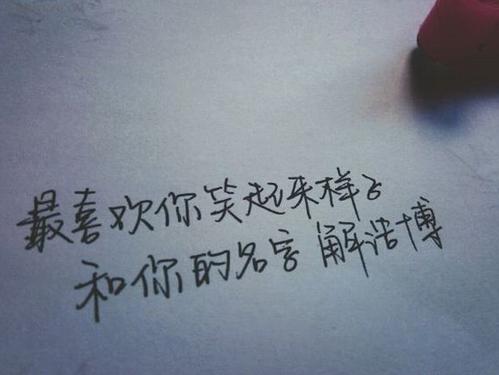 最喜欢你笑起来样子
和你的名字 解浩博